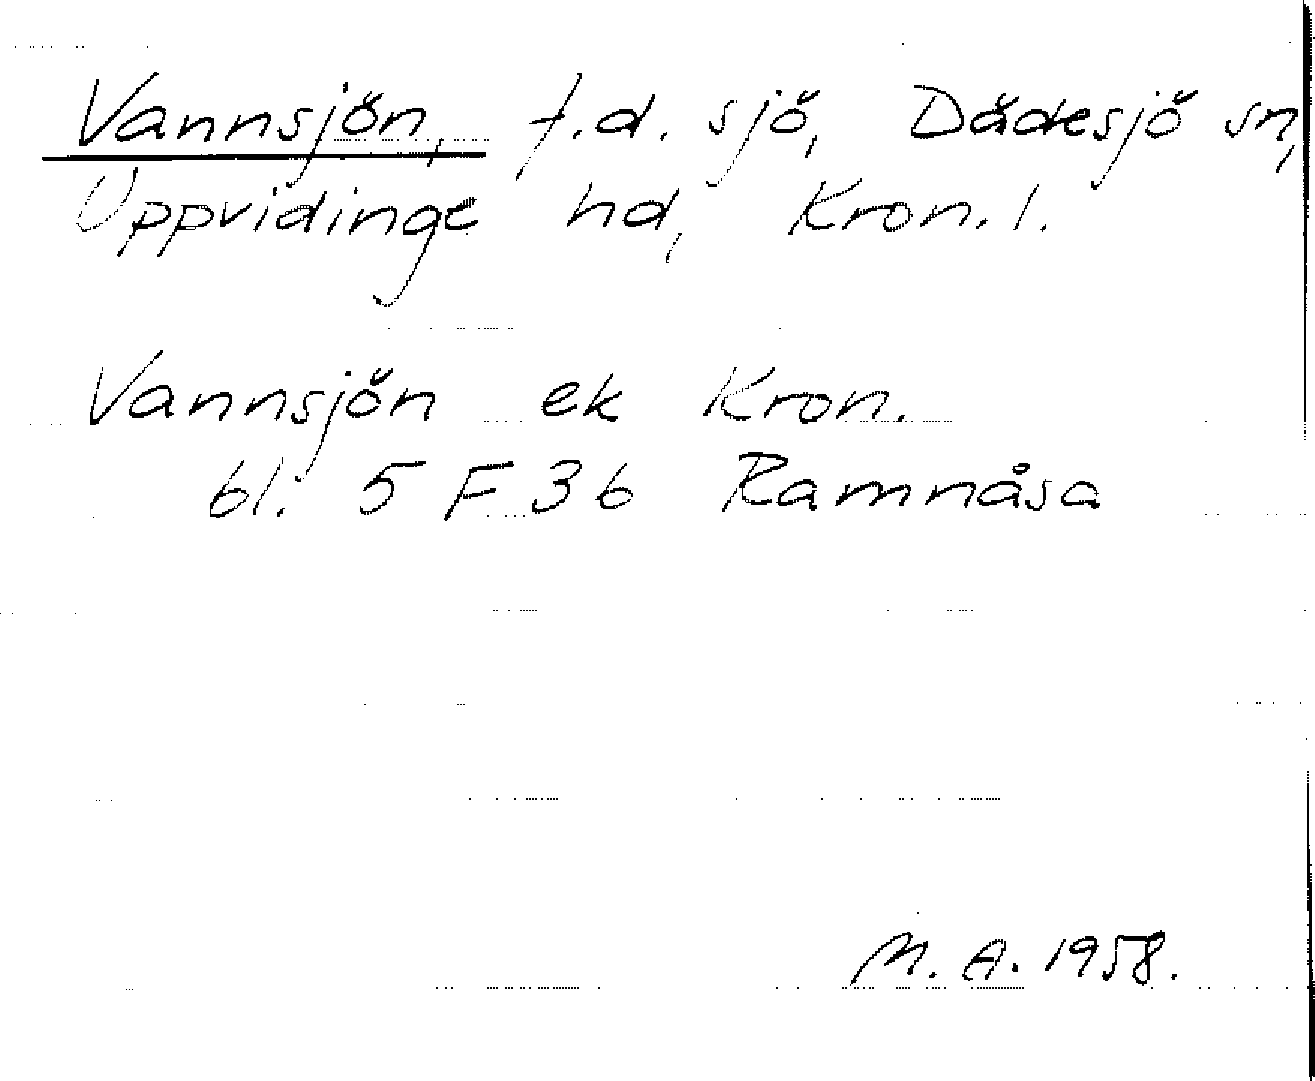 Vannsjön, f.d. sjö, Dädesjö sn,
Uppvidinge hd, Kron. l.
Vannsjön ek Kron.
bl. 5 F 3b Ramnåsa
M. A. 1958.